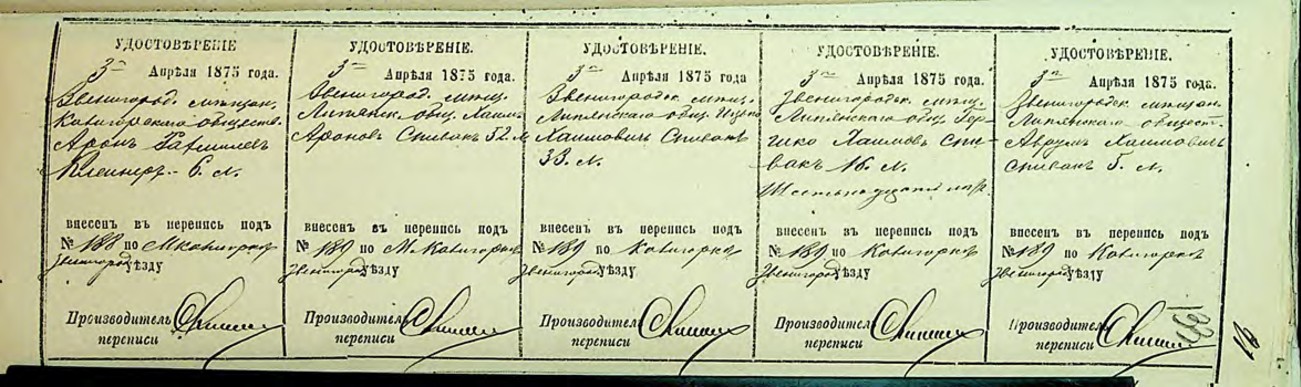 УДОСТОВѢРЕНІЕ
3го Апрѣля 1875 года.
Звенигород. мѣщан.
обществ.
Аронъ
6. л.
внесенъ въ перепись подъ
№ 188 по
Звенигород уѣзду
Производитель
переписи
УДОСТОВѢРЕНІЕ.
3го Апрѣля 1875 года.
Звенигород. мѣщ.
общ. Хаимъ
Ароновъ Спивак 52. л
внесенъ въ перепись подъ
№ 189 по М. Кобигорка
Звенигород уѣзду
Производитель
переписи
УДОСТОВѢРЕНІЕ.
3го Апрѣля 1875 года
Звенигородск. мѣщ.
Липянскаго общ. Ицко
Хаимовичъ Спивакъ
33. л.
внесенъ въ перепись подъ
№ 189 по Кобигорка
Звенигород уѣзду
Производитель
переписи
УДОСТОВѢРЕНІЕ.
3го Апрѣля 1875 года.
Звенигородск. мѣщ.
Липянскаго общ. Гер-
шко Хаимовъ Спи-
вакъ 16. л.
Шестьнадцати
внесенъ въ перепись подъ
№ 189 по Кобигорка
Звенигород уѣзду
Производитель
переписи
УДОСТОВѢРЕНІЕ.
3го Апрѣля 1875 года.
Звенигородск. мѣщан.
Липянскаго общест.
Аврумъ Хаимовичъ
Спивакъ 5. л.
внесенъ въ перепись подъ
№ 189 по Кобигорка
Звенигород уѣзду
Производитель
переписи